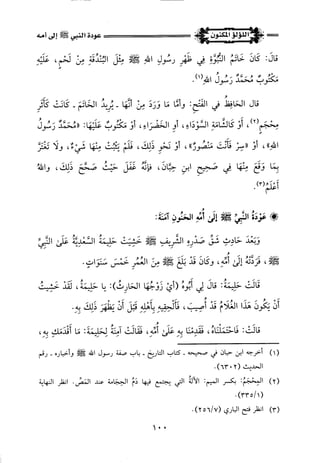 اللؤلؤ المكنون
عودة النبي ﷺ إلى أمه
قَالَ: كَانَ خَاتَمُ النُّبُوَّةِ فِي ظَهْرِ رَسُولِ اللهِ ﷺ مِثْلَ البُنْدُقَةِ مِنْ لَحْمٍ، عَلَيْهِ
مَكْتُوبٌ مُحَمَّدٌ رَسُولُ اللهِ(١).
قال الحَافِظُ فِي الفَتْحِ: وأمَّا مَا وَرَدَ مِنْ أنَّهَا -يُرِيدُ الخَاتَمَ- كَانَتْ كَأَثَرِ
مِحْجَمٍ(٢)، أَوْ كَالشَّامَةِ السَّوْدَاءِ، أو الخَضْرَاءِ، أوْ مَكْتُوبٌ عَلَيْهَا: «مُحَمَّدٌ رَسُولُ
اللهِ»، أوْ «سِرْ فَأَنْتَ مَنْصُورٌ»، أوْ نَحْوِ ذَلِكَ، فَلَمْ يَثْبُتْ مِنْهَا شَيْءٌ، ولَا تَغْتَرَّ
بِمَا وَقَعَ مِنْهَا فِي صَحِيحِ ابنِ حِبَّانَ، فَإِنَّهُ غَفَلَ حَيْثُ صَحَّحَ ذَلِكَ، واللهُ
أَعْلَمُ(٣).
❁ عَوْدَةُ النَّبِيِّ ﷺ إِلَى أُمِّهِ الحَنُونِ آمِنَةَ:
وَبَعْدَ حَادِثِ شَقِّ صَدْرِهِ الشَّرِيفِ ﷺ خَشِيَتْ حَلِيمَةُ السَّعْدِيَّةُ عَلَى النَّبِيِّ
ﷺ، فَرَدَّتْهُ إِلَى أُمِّهِ، وكَانَ قَدْ بَلَغَ ﷺ مِنَ العُمُرِ خَمْسَ سَنَوَاتٍ.
قَالَتْ حَلِيمَةُ: قَالَ لِي أَبُوهُ (أَيْ زَوْجُهَا الحَارِثُ): يَا حَلِيمَةُ، لَقَدْ خَشِيتُ
أَنْ يَكُونَ هَذَا الغُلَامُ قَدْ أُصِيبَ، فَأَلْحِقِيهِ بِأَهْلِهِ قَبْلَ أَنْ يَظْهَرَ ذَلِكَ بِهِ.
قَالَتْ: فَاحْتَمَلْنَاهُ، فَقَدِمْنَا بِهِ عَلَى أُمِّهِ، فَقَالَتْ آمِنَةُ لِحَلِيمَةَ: مَا أَقْدَمَكِ بِهِ،
(١) أخرجه ابن حبان في صحيحه - كتاب التاريخ - باب صفة رسول الله ﷺ وأخباره - رقم
الحديث (٦٣٠٢).
(٢) المِحْجَمُ: بكسر الميم: الآلةُ التي يجتمع فيها دَمُ الحِجَامَةِ عند المَصِّ. انظر النهاية
(١/٣٣٥).
(٣) انظر فتح الباري (٧/٢٥٦).
١٠٠